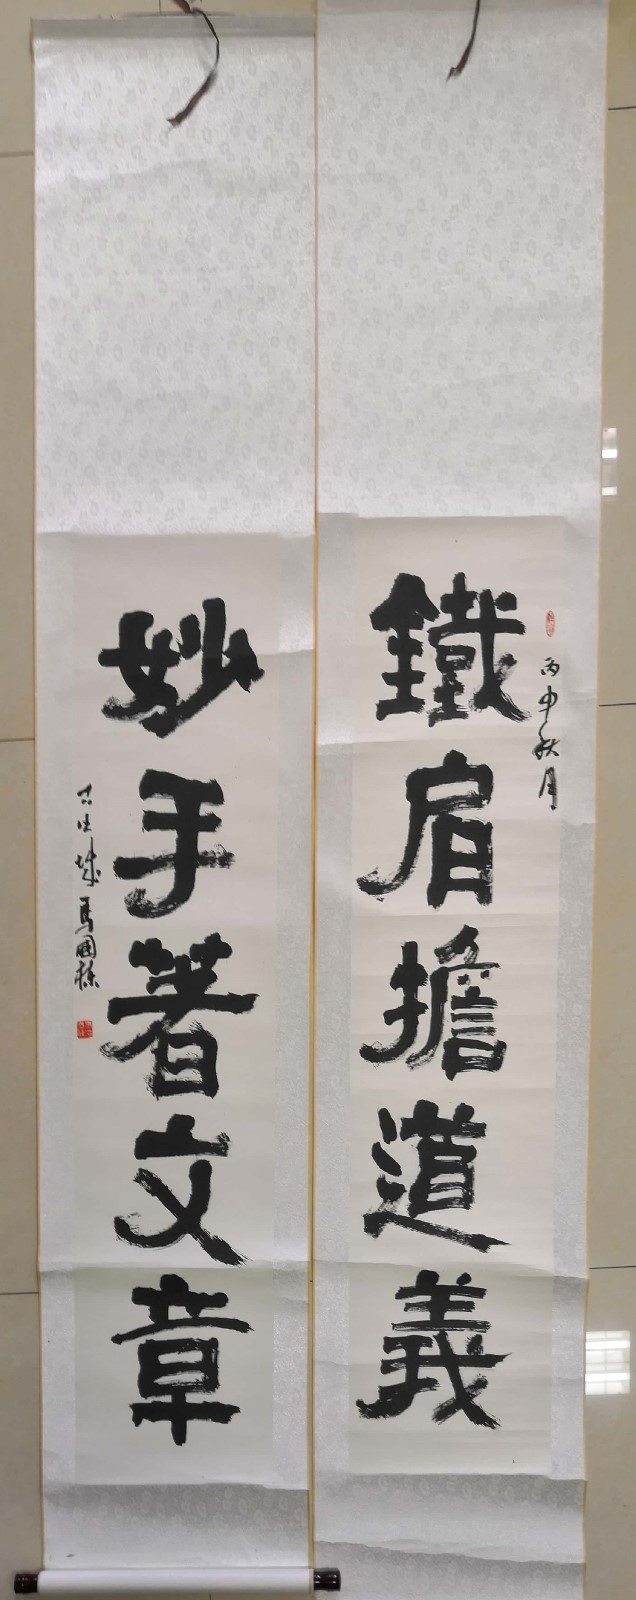 鐵肩擔道義
丙申秋月
妙手著文章
馬國棟